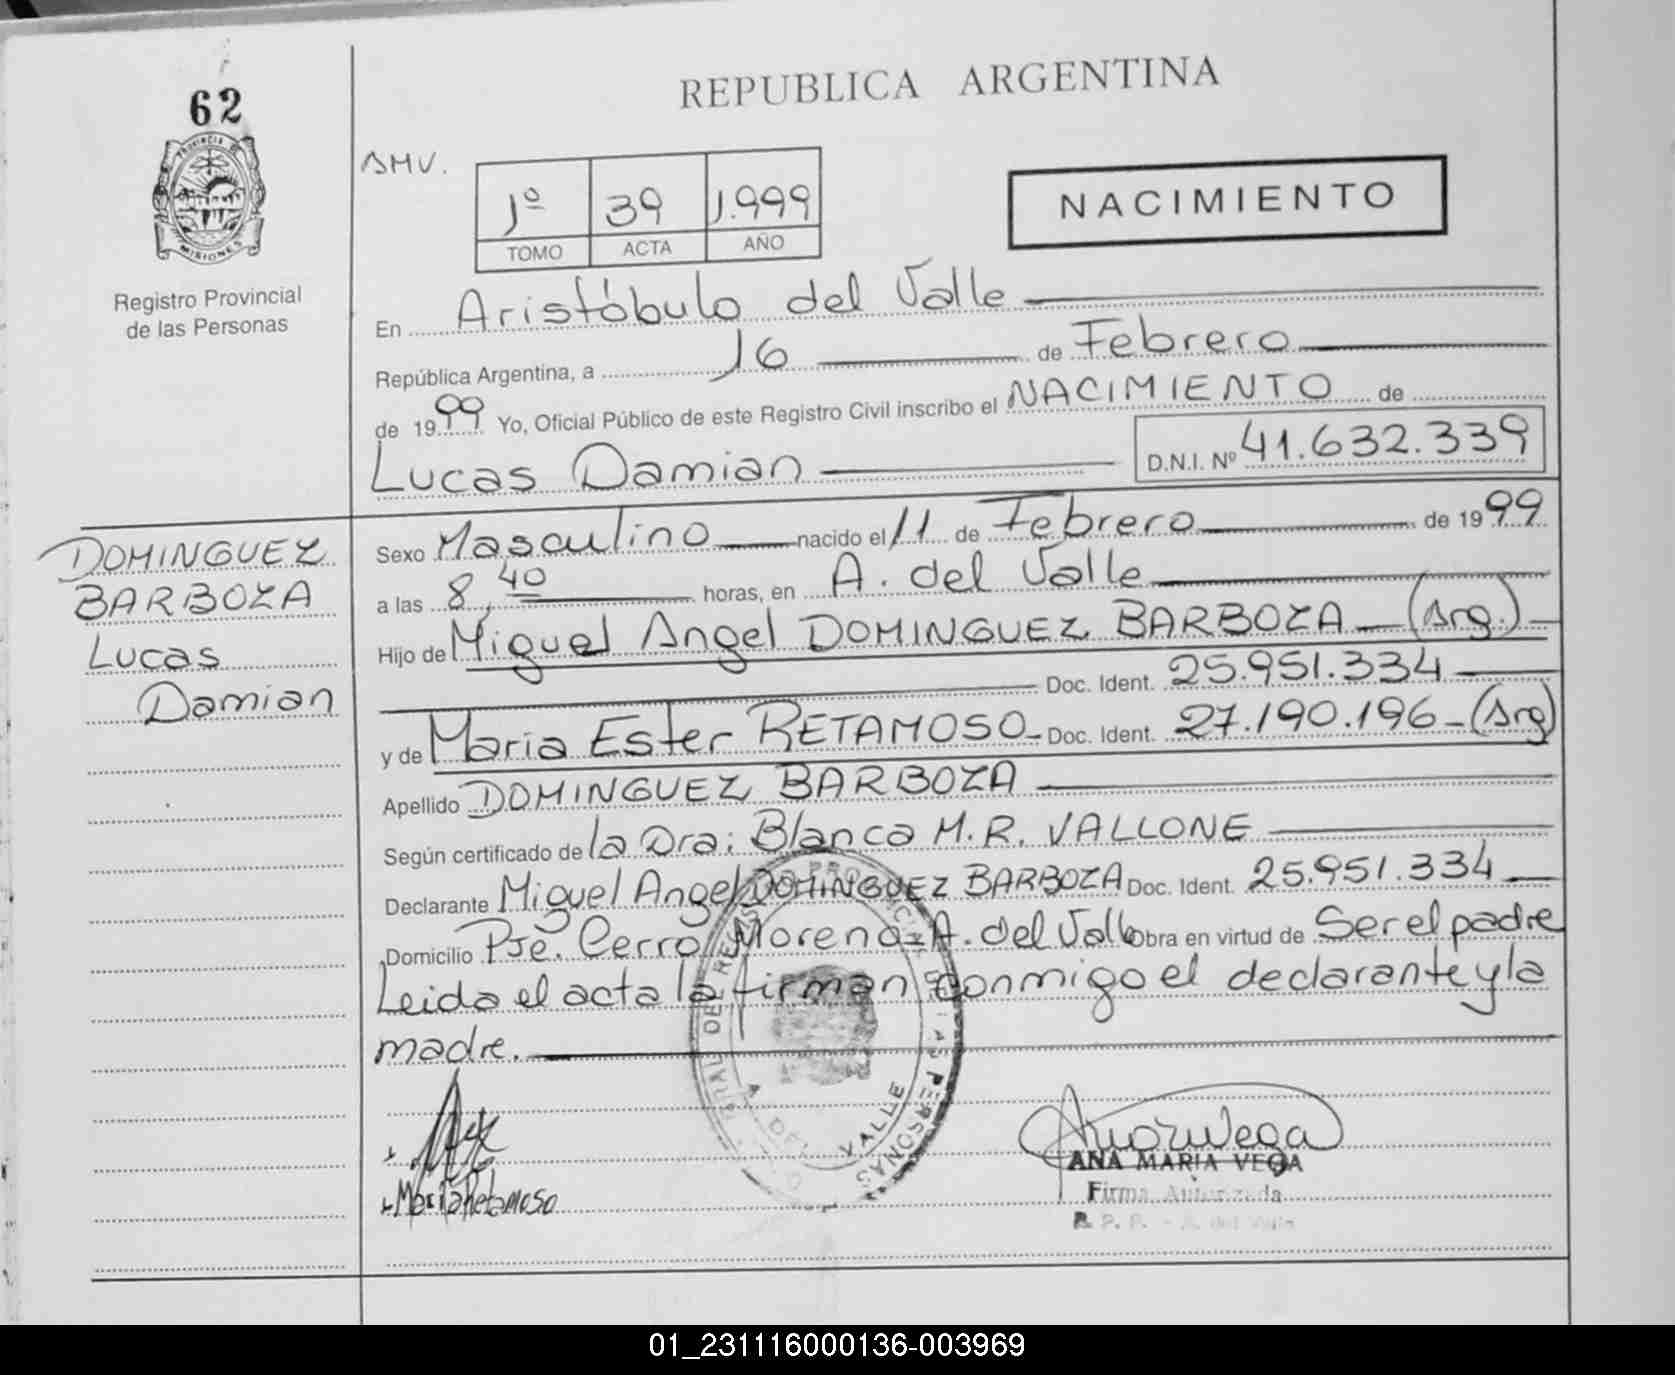 REPUBLICA ARGENTINA
62
PROVINCIA DE
MISIONES
Registro Provincial
de las Personas
AMV.
1º 39 1.999
TOMO ACTA AÑO
NACIMIENTO
En Aristóbulo del Valle
República Argentina, a 16 de Febrero
de 1999 Yo, Oficial Público de este Registro Civil inscribo el NACIMIENTO de
Lucas Damian D.N.I. Nº 41.632.339
DOMINGUEZ
BARBOZA
Lucas
Damian
Sexo Masculino nacido el 11 de Febrero de 1999
a las 8,40 horas, en A. del Valle
Hijo de Miguel Angel DOMINGUEZ BARBOZA (Arg.)
Doc. Ident. 25.951.334
y de Maria Ester RETAMOSO Doc. Ident. 27.190.196 (Arg)
Apellido DOMINGUEZ BARBOZA
Según certificado de la Dra: Blanca M.R. VALLONE
Declarante Miguel Angel DOMINGUEZ BARBOZA Doc. Ident. 25.951.334
Domicilio Pje. Cerro Moreno-A. del Valle Obra en virtud de Ser el padre
Leida el acta la firman conmigo el declarante y la
madre.
DEL VALLE
PERSONAS
Maria Retamoso
ANA MARIA VEGA
Firma Autorizada
R. P. P. - A. del Valle
01_231116000136-003969